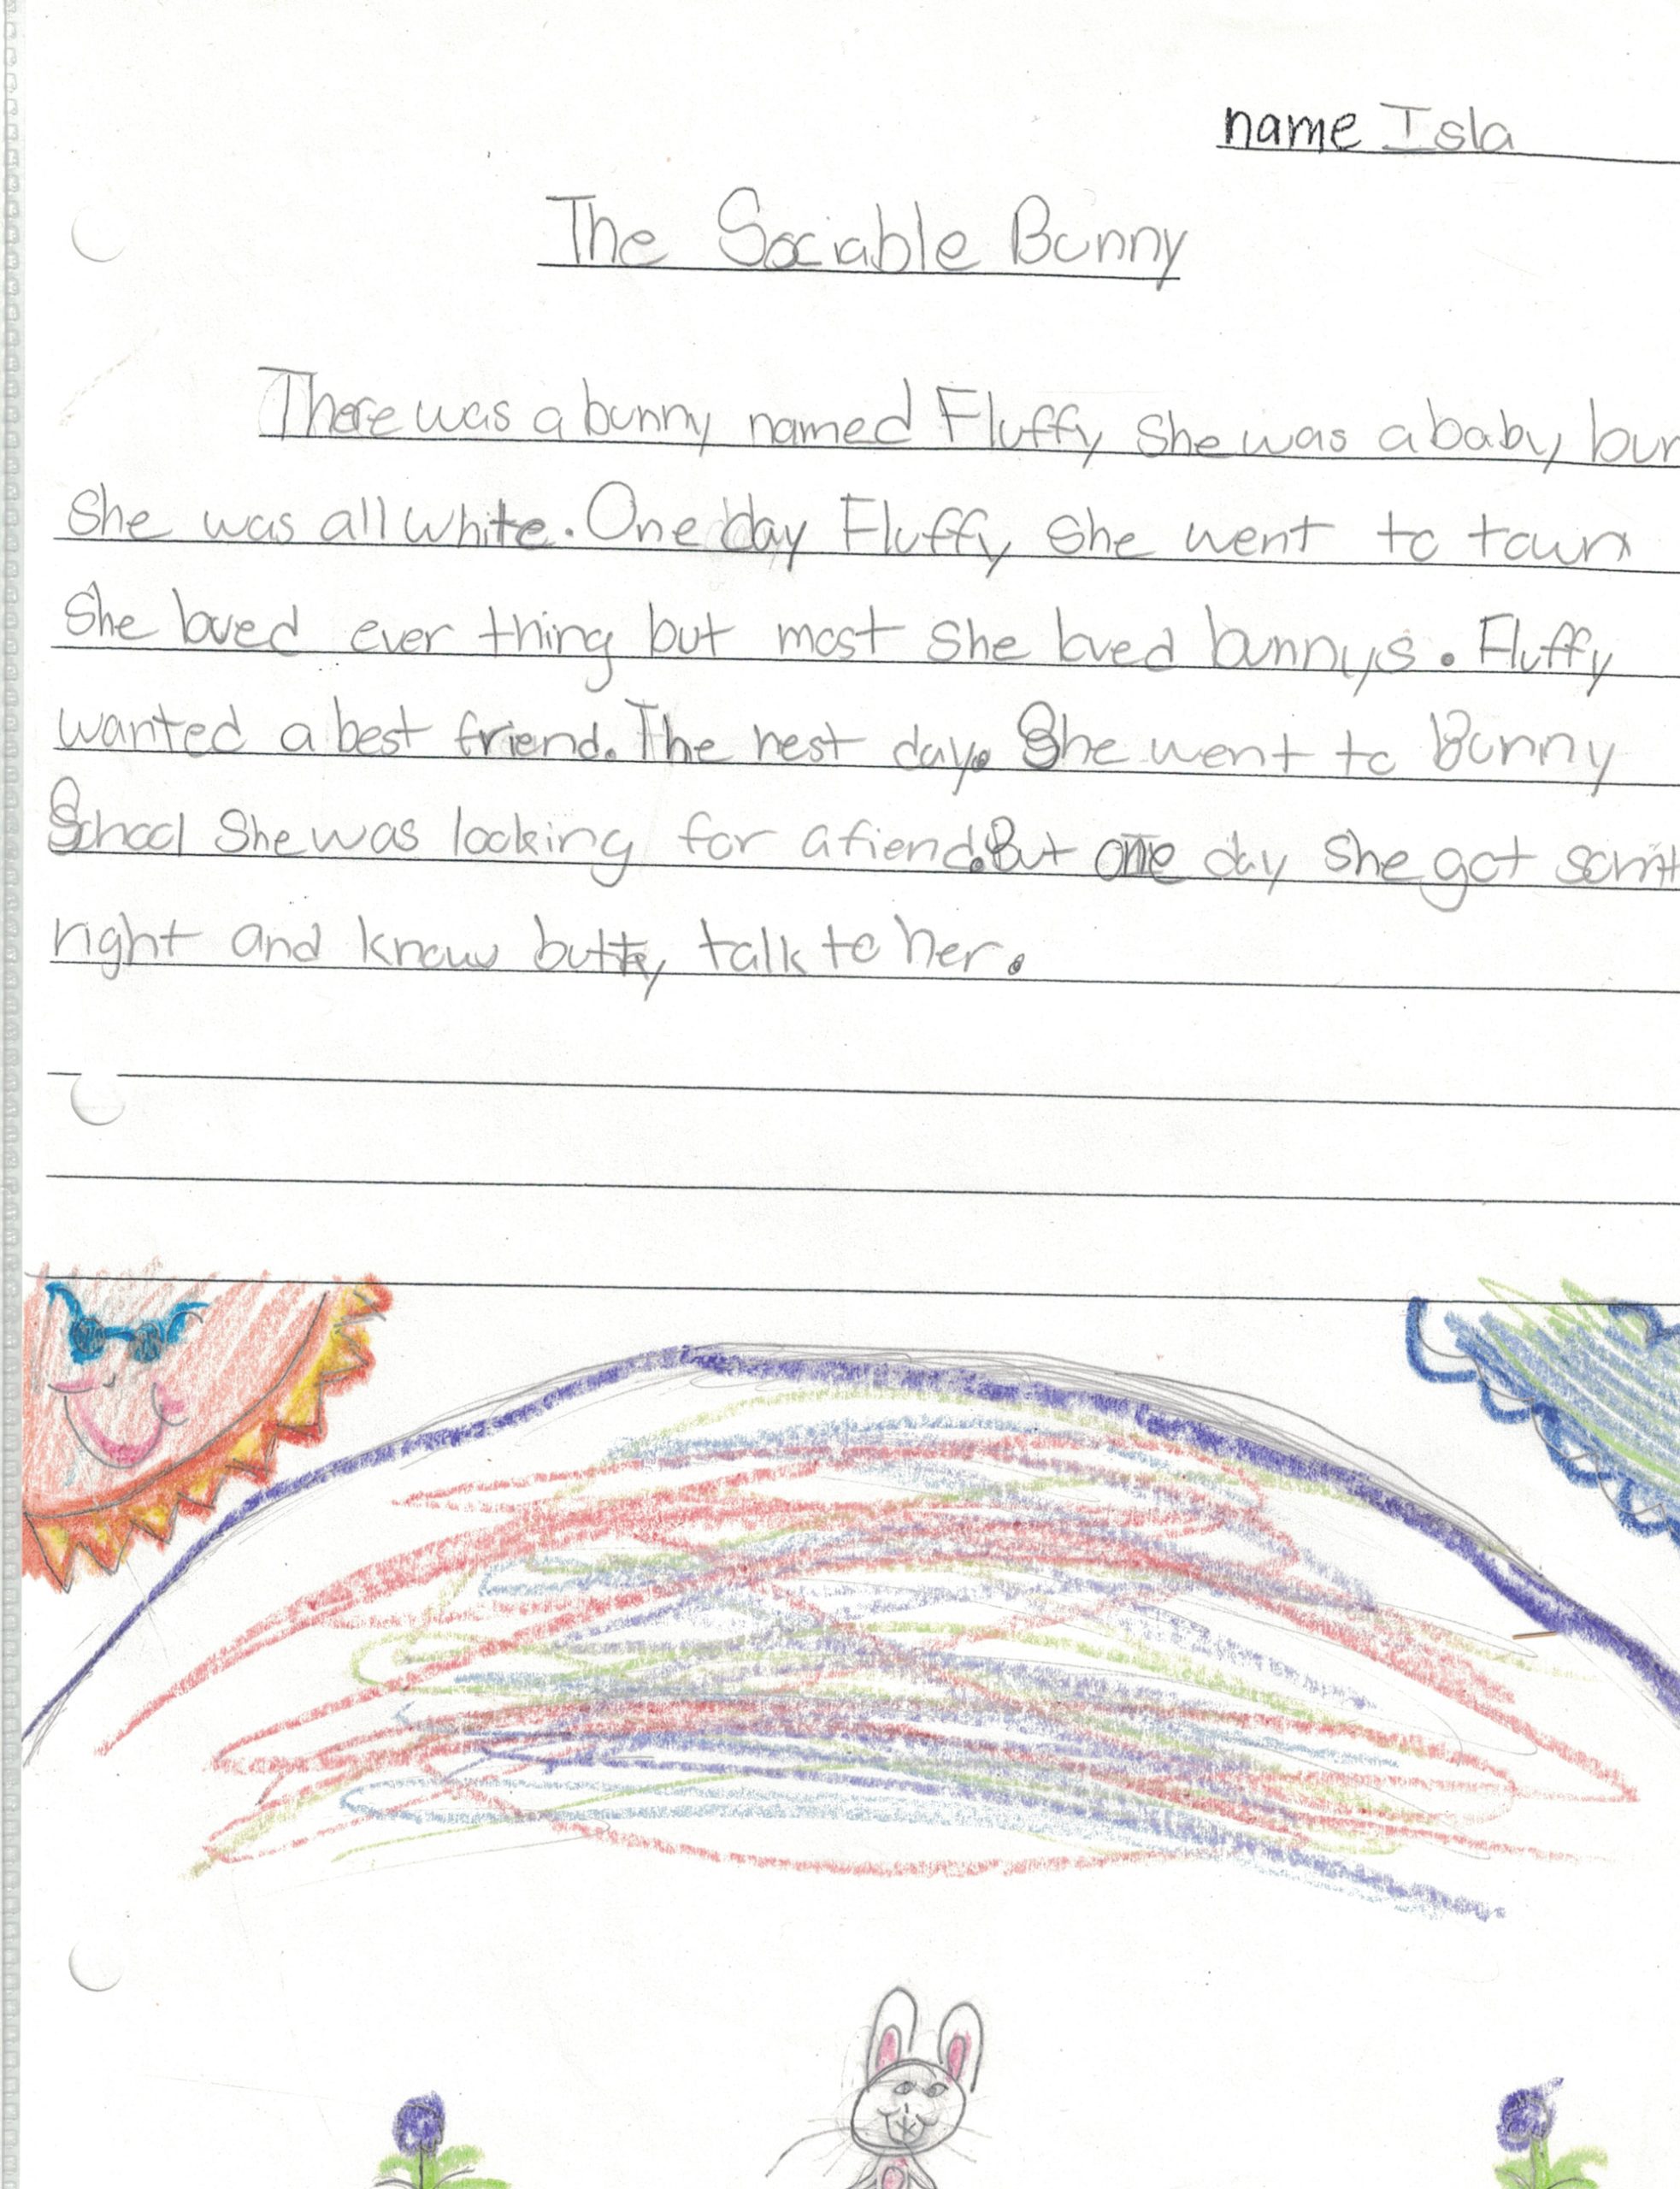 name Isla
The Sociable Bunny
There was a bunny named Fluffy She was a baby
She was all white. One day Fluffy She went to town
She loved ever thing but most She loved bunnys. Fluffy
wanted a best friend. The nest day. She went to Bunny
School She was looking for a fiend. But one day She got
right and know butty talk to her.